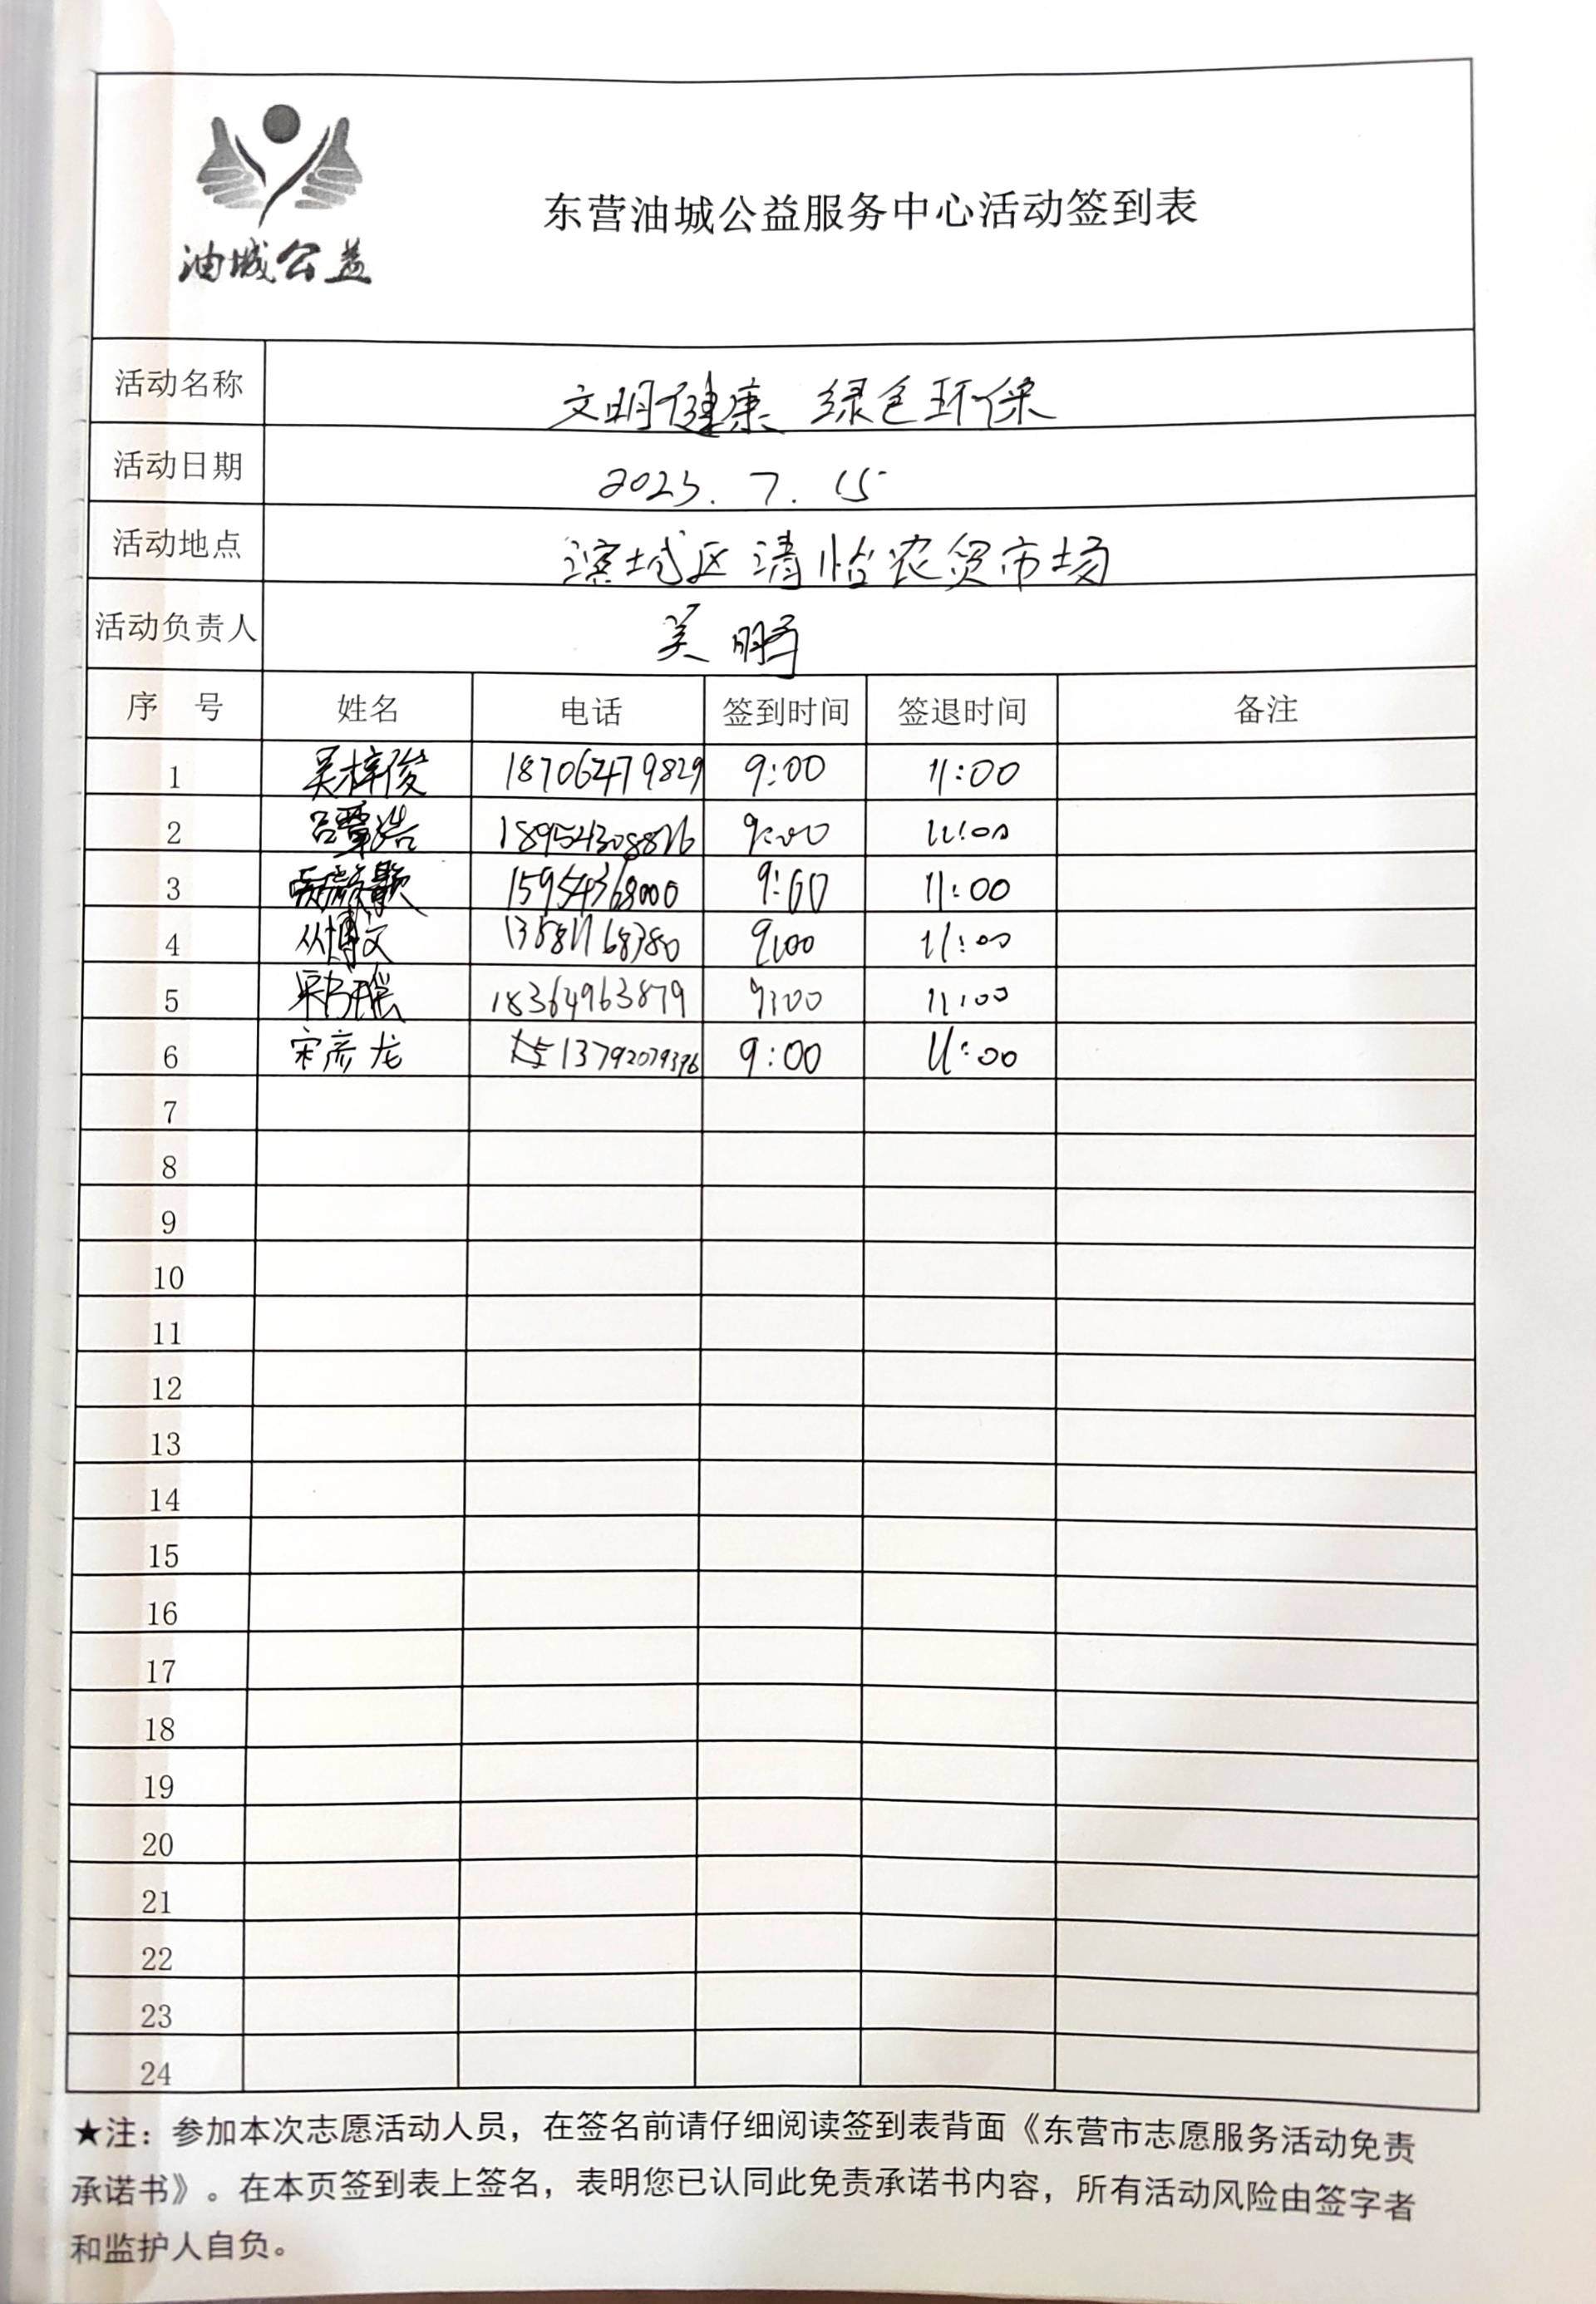 油城公益
东营油城公益服务中心活动签到表
活动名称 文明健康 绿色环保
活动日期 2023.7.15
活动地点 滨城区清怡农贸市场
活动负责人 吴鹏
序 号 姓名 电话 签到时间 签退时间 备注
1 吴梓俊 18706479829 9:00 11:00
2 吕覃浩 18954308876 9:00 11:00
3 15954368000 9:00 11:00
4 从博文 9:00 11:00
5 18364963879 9:00 11:00
6 宋彦龙 13792079396 9:00 11:00
7
8
9
10
11
12
13
14
15
16
17
18
19
20
21
22
23
24
★注：参加本次志愿活动人员，在签名前请仔细阅读签到表背面《东营市志愿服务活动免责
承诺书》。在本页签到表上签名，表明您已认同此免责承诺书内容，所有活动风险由签字者
和监护人自负。